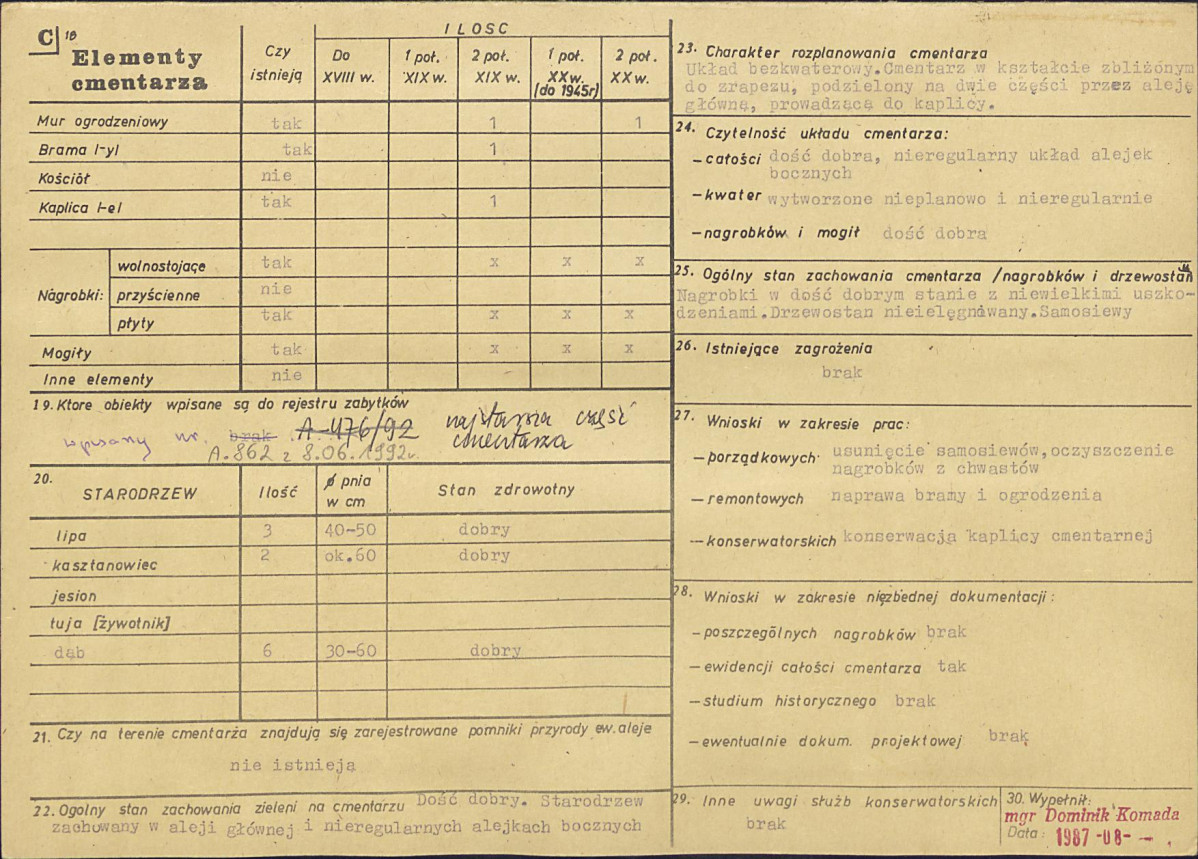 C 18
Elementy
cmentarza
Czy
istnieją
ILOSC
Do
XVIII w.
1 poł.
XIX w.
2 poł.
XIX w.
1 poł.
XX w.
(do 1945r)
2 poł.
XX w.
Mur ogrodzeniowy tak 1 1
Brama /-y/ tak 1
Kościół nie
Kaplica /-e/ tak 1
Nagrobki:
wolnostojące tak x x x
przyścienne nie
płyty tak x x x
Mogiły tak x x x
Inne elementy nie
19. Ktore obiekty wpisane są do rejestru zabytków
wpisany nr. brak A-476/92 najstarsza część
cmentarza
A.862 z 8.06.1992r.
20.
STARODRZEW
Ilość
ø pnia
w cm
Stan zdrowotny
lipa 3 40-50 dobry
kasztanowiec 2 ok.60 dobry
jesion
tuja [żywotnik]
dąb 6 30-60 dobry
21. Czy na terenie cmentarza znajdują się zarejestrowane pomniki przyrody ew. aleje
nie istnieją
22. Ogolny stan zachowania zieleni na cmentarzu Dość dobry. Starodrzew
zachowany w aleji głównej i nieregularnych alejkach bocznych
23. Charakter rozplanowania cmentarza
Układ bezkwaterowy.Cmentarz w kształcie zbliżonym
do zrapezu, podzielony na dwie części przez aleję
główną, prowadzącą do kaplicy.
24. Czytelność układu cmentarza:
- całości dość dobra, nieregularny układ alejek
bocznych
- kwater wytworzone nieplanowo i nieregularnie
- nagrobków i mogił dość dobra
25. Ogólny stan zachowania cmentarza /nagrobków i drzewostan
Nagrobki w dość dobrym stanie z niewielkimi uszko-
dzeniami.Drzewostan nieielęgnowany.Samosiewy
26. Istniejące zagrożenia
brak
27. Wnioski w zakresie prac:
- porządkowych usunięcie samosiewów,oczyszczenie
nagrobków z chwastów
- remontowych naprawa bramy i ogrodzenia
- konserwatorskich konserwacja kaplicy cmentarnej
28. Wnioski w zakresie niezbednej dokumentacji:
- poszczególnych nagrobków brak
- ewidencji całości cmentarza tak
- studium historycznego brak
- ewentualnie dokum. projektowej brak
29. Inne uwagi służb konserwatorskich
brak
30. Wypełnił:
mgr Dominik Komada
Data: 1987 -08- -